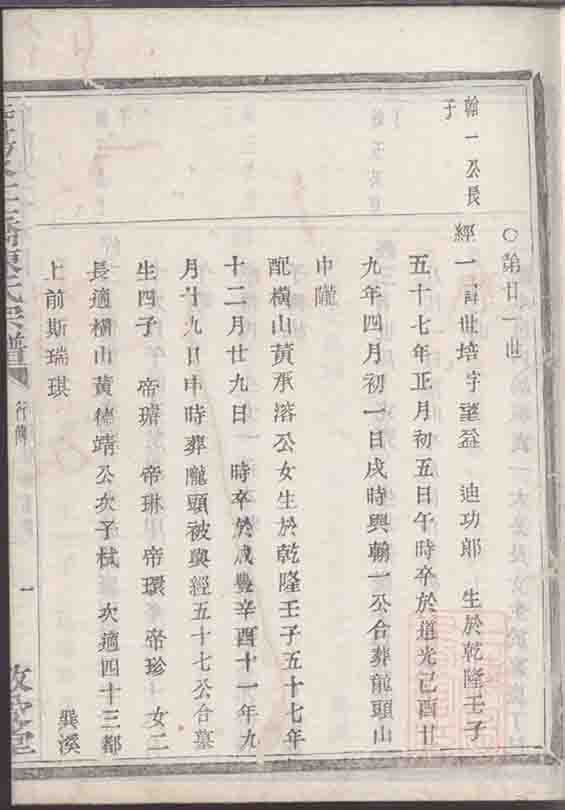 ○第廿一世
翰一公長
子
經一諱世培字 迪功郎 生於乾隆壬子
五十七年正月初五日午時卒於道光己酉廿
九年四月初一日戌時與翰一公合葬龍頭山
中隴
配橫山黃承溶公女生於乾隆壬子五十七年
十二月廿九日 時卒於咸豐辛酉十一年九
月廿九日申時葬隴頭被與經五十七公合墓
生四子 帝瑭 帝琳 帝環 帝珍 女二
長適橫山黃德靖公次子栻 次適四十三都 巽溪
上前斯瑞琪
宗譜
行傳
一